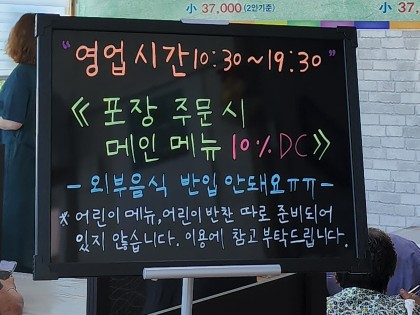 小 37,000 (2인기준)
"영업시간 10:30~19:30"
《 포장 주문 시
메인 메뉴 10% DC 》
- 외부음식 반입 안돼요ㅠㅠ -
* 어린이 메뉴, 어린이 반찬 따로 준비되어
있지 않습니다. 이용에 참고 부탁드립니다.